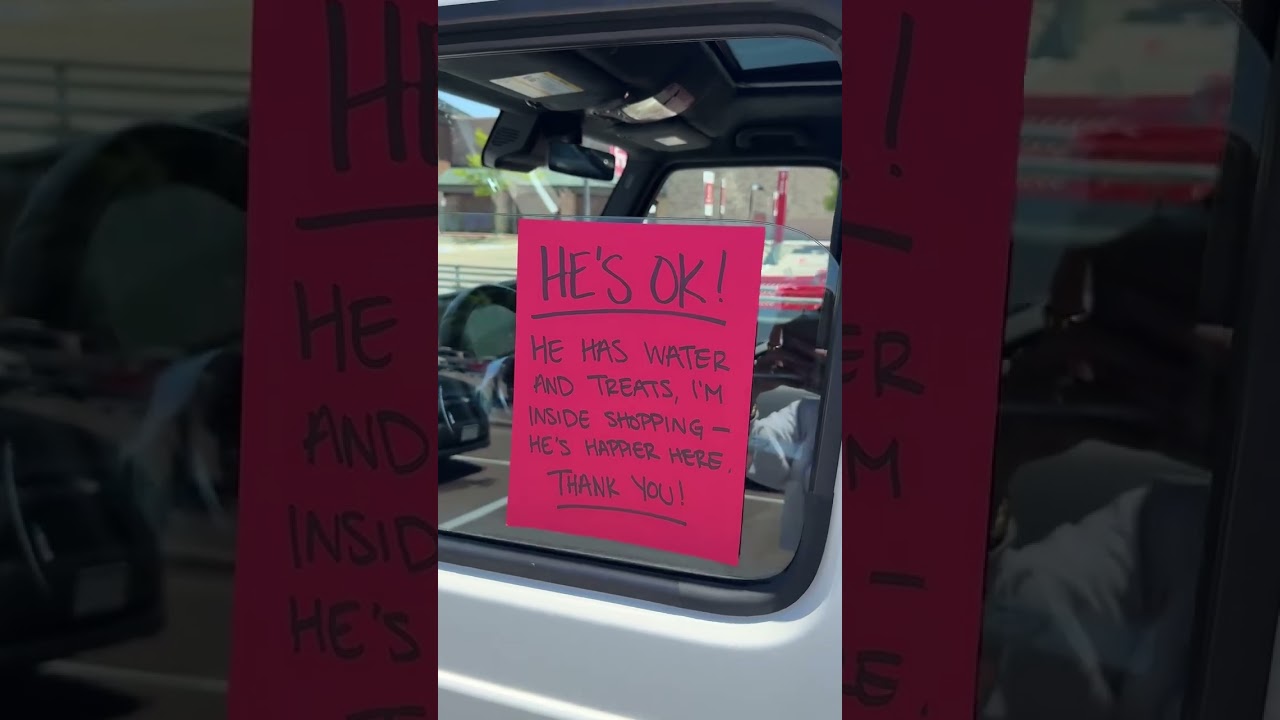 HE'S OK!
HE HAS WATER
AND TREATS, I'M
INSIDE SHOPPING –
HE'S HAPPIER HERE.
THANK YOU!